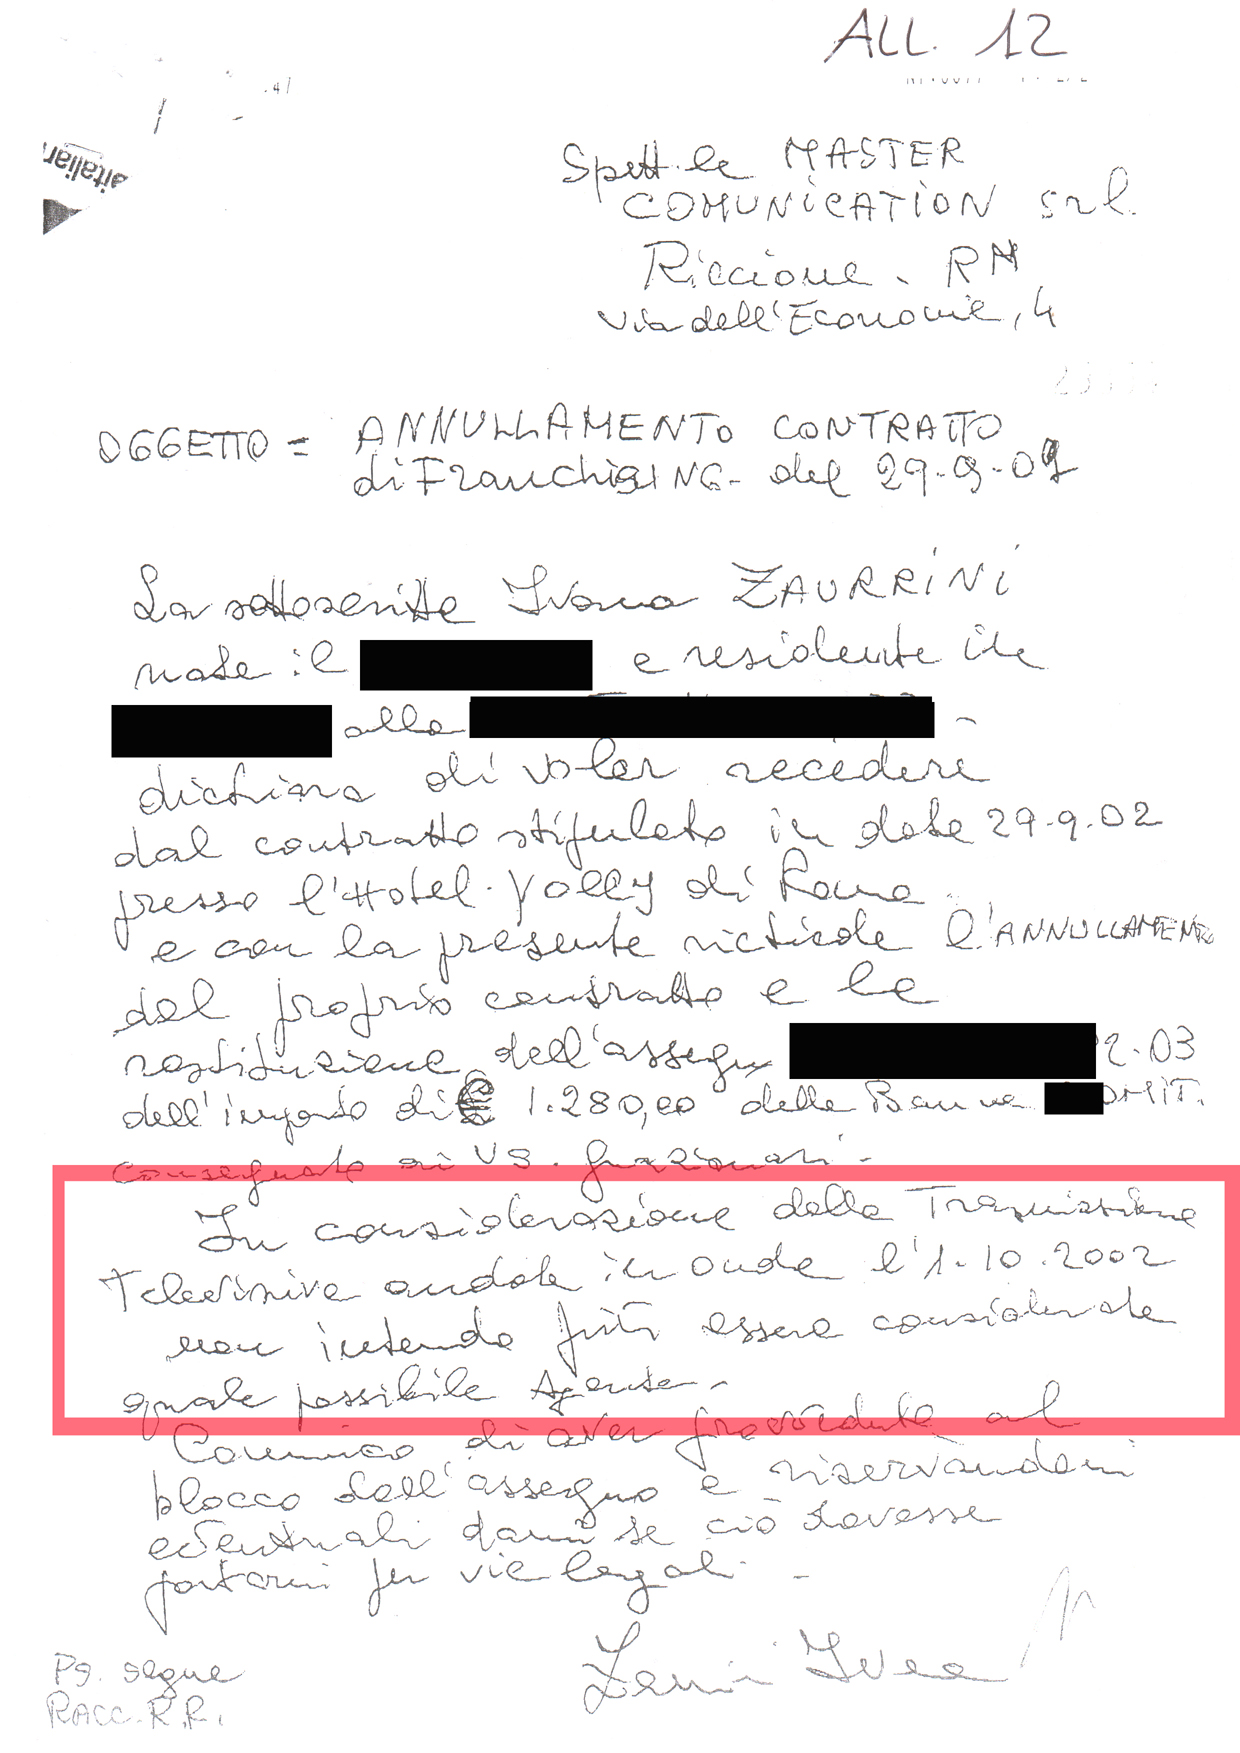 ALL. 12
Spett.le MASTER
COMUNICATION srl.
Riccione. RN
via dell'Economie, 4
OGGETTO = ANNULLAMENTO CONTRATTO
di FranchisING. del 29.9.02
La sottoscritta Ivana ZAURRINI
nata il e residente in
alla
dichiara di voler recedere
dal contratto stipulato in data 29.9.02
presso l'Hotel Jolly di Roma
e con la presente richiede l'ANNULLAMENTO
del proprio contratto e la
restituzione dell'assegno 2.03
dell'importo di € 1.280,00 della Banca OMIT.
consegnato ai VS. funzionari.
In considerazione della Trasmissione
Televisiva andata in onda l'1.10.2002
non intendo più essere considerata
quale possibile Agente.
Comunico di aver provveduto al
blocco dell'assegno e riservandomi
eventuali danni se ciò dovesse
portarmi per vie legali.
Ps. segue
RACC. R.R.